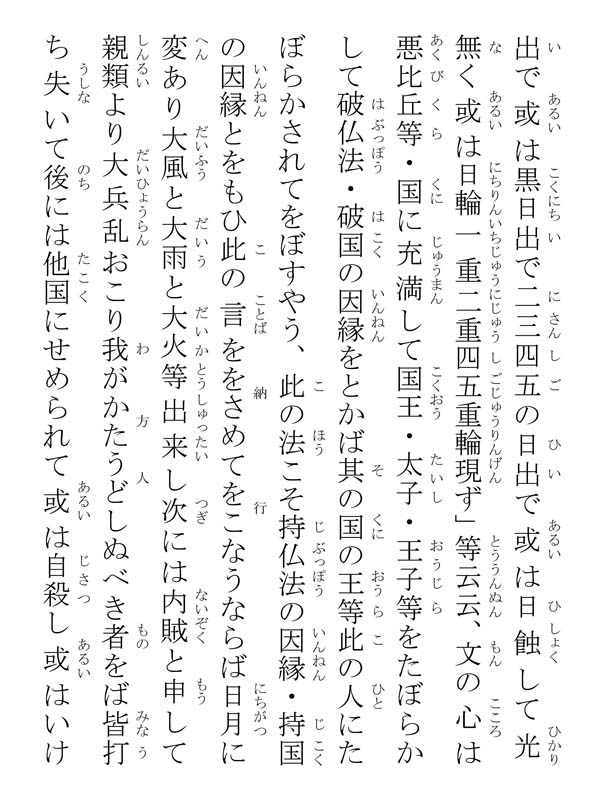 出で或は黒日出で二三四五の日出で或は日蝕して光
無く或は日輪一重二重四五重輪現ず」等云云、文の心は
悪比丘等・国に充満して国王・太子・王子等をたぼらか
して破仏法・破国の因縁をとかば其の国の王等此の人にた
ぼらかされてをぼすやう、此の法こそ持仏法の因縁・持国
の因縁とをもひ此の言ををさめてをこなうならば日月に
変あり大風と大雨と大火等出来し次には内賊と申して
親類より大兵乱おこり我がかたうどしぬべき者をば皆打
ち失いて後には他国にせめられて或は自殺し或はいけ